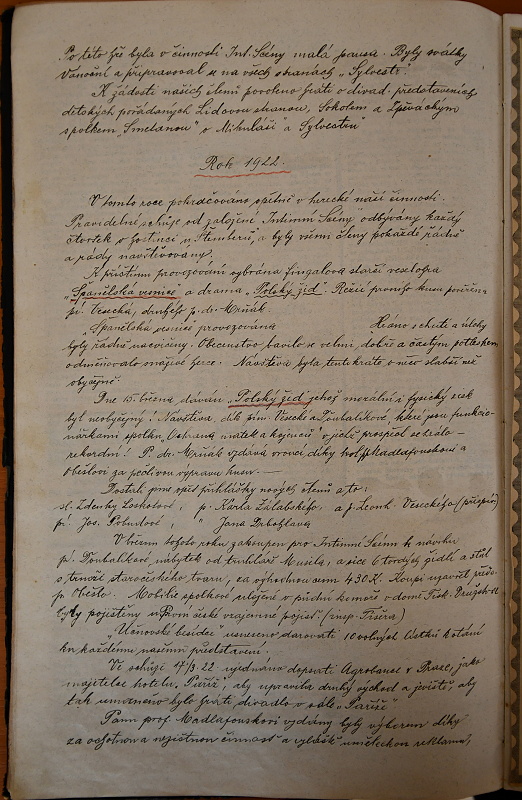 Po této hře byla v činnosti Int. Scény malá pausa. Byly svátky
vánoční a připravoval se na všech stranách „Sylvestr“.
K žádosti našich členů povoleno hráti o divad. představeních
dětských pořádaných Lidovou stranou, Sokolem a Zpěváckým
spolkem „Smetanou“ o Mikuláši a Sylvestru
Rok 1922.
V tomto roce pokračováno opětně v herecké naší činnosti.
Pravidelné schůze od založení Intimní Scény odbývány každý
čtvrtek v hostinci u „Šternberů“, a byly všemi členy pokaždé řádně
a rády navštěvovány.
K příštímu provozování vybrána fingalova starší veselohra
„Španělská vesnice“ a drama „Polský žid“. Režií prvního kusu pověřena
pí. Vesecká, druhého p. dr. Mrňák.
„Španělská vesnice provozována Hráno s chutí a úlohy
byly řádně nacvičeny. Obecenstvo bavilo se velmi dobře a častým potleskem
odměňovalo snaživé herce. Návštěva byla tentokráte o něco slabší než
obyčejně.
Dne 15. března dáván „Polský žid“ jehož morální i fysický zisk
byl neobyčejný! Návštěva, dík pím. Vesecké a Doubalíkové, které jsou funkcio-
nářkami spolku „Ochrana matek a kojenců“ v jehož prospěch se hrálo –
rekordní! P. dr. Mrňák vzdává vroucí díky prof. Madlafouskovi a
Obešlovi za pečlivou výpravu kusu. —
Dostali jsme opět přihlášky nových členů a to:
sl. Zdenky Loskotové, p. Karla Zálabského, a p. Leonh. Veseckého (přispív.)
pí. Jos. Pobudové, " Jana Drbohlava
V březnu tohoto roku zakoupen pro Intimní Scénu k návrhu
pí. Doubalíkové nábytek od truhláře Musila, a sice 6 tvrdých židlí a stůl
s truhlí staročeského tvaru, za výhodnou cenu 430 K. Koupi uzavřel předs.
p. Obešlo. Mobilie spolkové uložené v půdní komoře v domě Tisk. Družstva
byly pojištěny u První české vzájemné pojišť. (insp. Tišera)
„Učňovské besídce“ usneseno darovati 10 volných lístků k stání
ku každému našemu představení.
Ve schůzi 17/3. 22 ujednáno dopsati Agrobance v Praze, jako
majitelce hotelu „Paříž“, aby upravila druhý východ a jeviště, aby
tak umožněno bylo hráti divadlo v sále „Paříže“
Panu prof. Madlafouskovi vzdány byly výborem díky
za ochotnou a nezištnou činnost a zvlášť uměleckou reklamu,